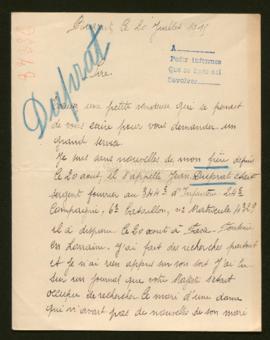 le 20 Juillet 1915
A
Pedir informes
Que se
Devolver
Duprat
Sire,
une petite inconnue qui se permet
de vous écrire pour vous demander un
grand service
Je suis sans nouvelles de mon père depuis
le 20 août, il s'appelle Jean Duprat était
sergent fourrier au 344e d'Infanterie 24e
Compagnie, 6e Bataillon, no Matricule
il a disparu le 20 août à
en Lorraine. J'ai fait des recherches partout
et je n'ai rien appris sur son sort. J'ai lu
sur un journal que votre Majesté
de rechercher le mari d'une dame
qui n'avait pas de nouvelles de son mari